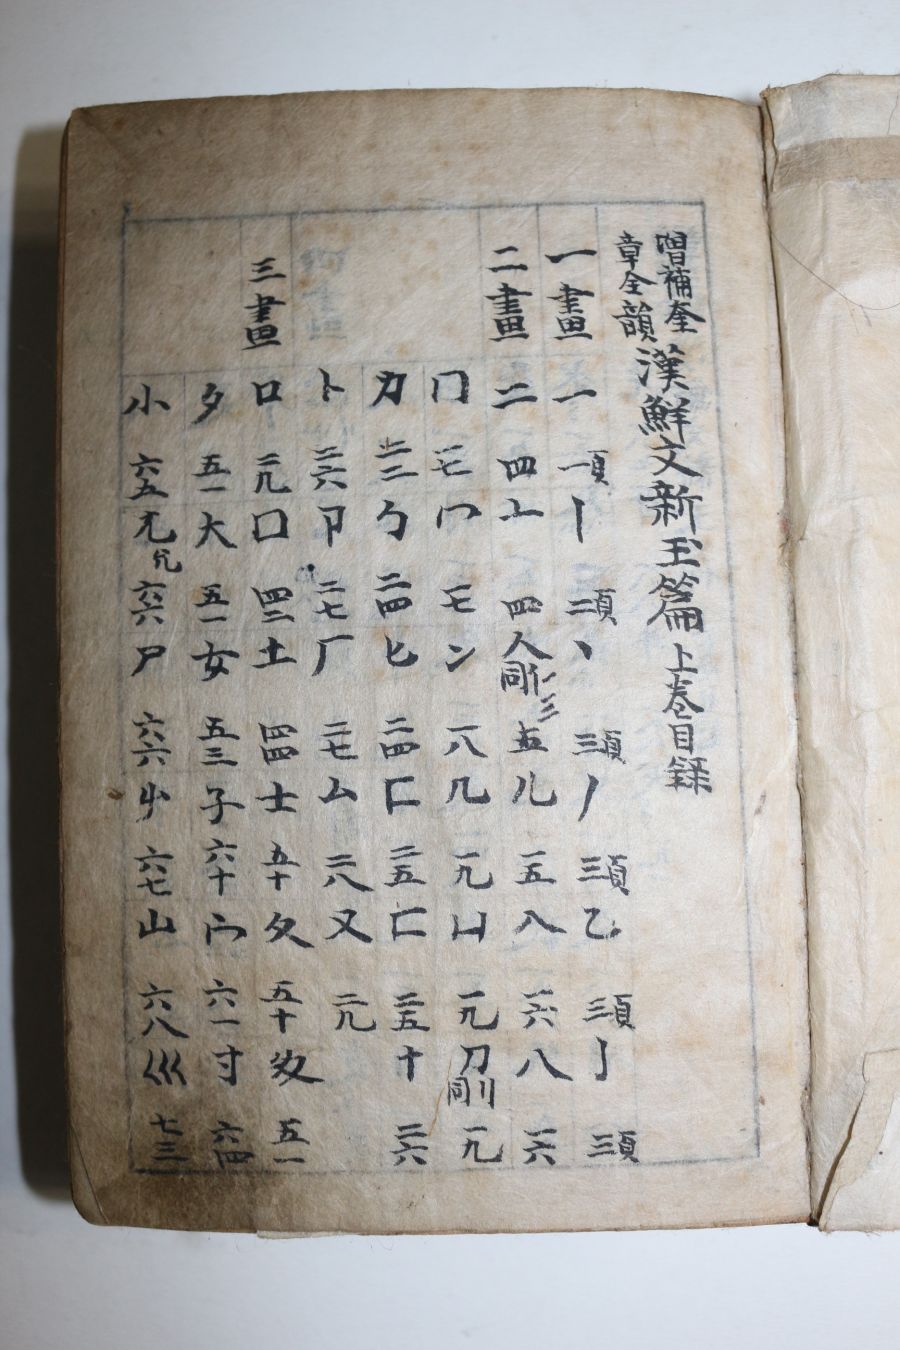 增補奎章全韻漢鮮文新玉篇上卷目録
一畫 一 一頁 丨 二頁 丶 三頁 丿 三頁 乙 三頁 亅 三頁
二畫 二 四 亠 四 人 仁同彡 五 儿 一五 入 一六 八 一六
冂 一七 冖 一七 冫 一八 几 一九 凵 一九 刀 同刂 一九
力 二二 勹 二四 匕 二四 匚 二五 匸 二五 十 二六
卜 二六 卩 二七 厂 二七 厶 二八 又 二九
三畫 口 二九 囗 四二 土 四四 士 五十 夂 五十 夊 五一
夕 五一 大 五一 女 五三 子 六十 宀 六一 寸 六四
小 六五 尢 兀 六六 尸 六六 屮 六七 山 六八 巛 七三